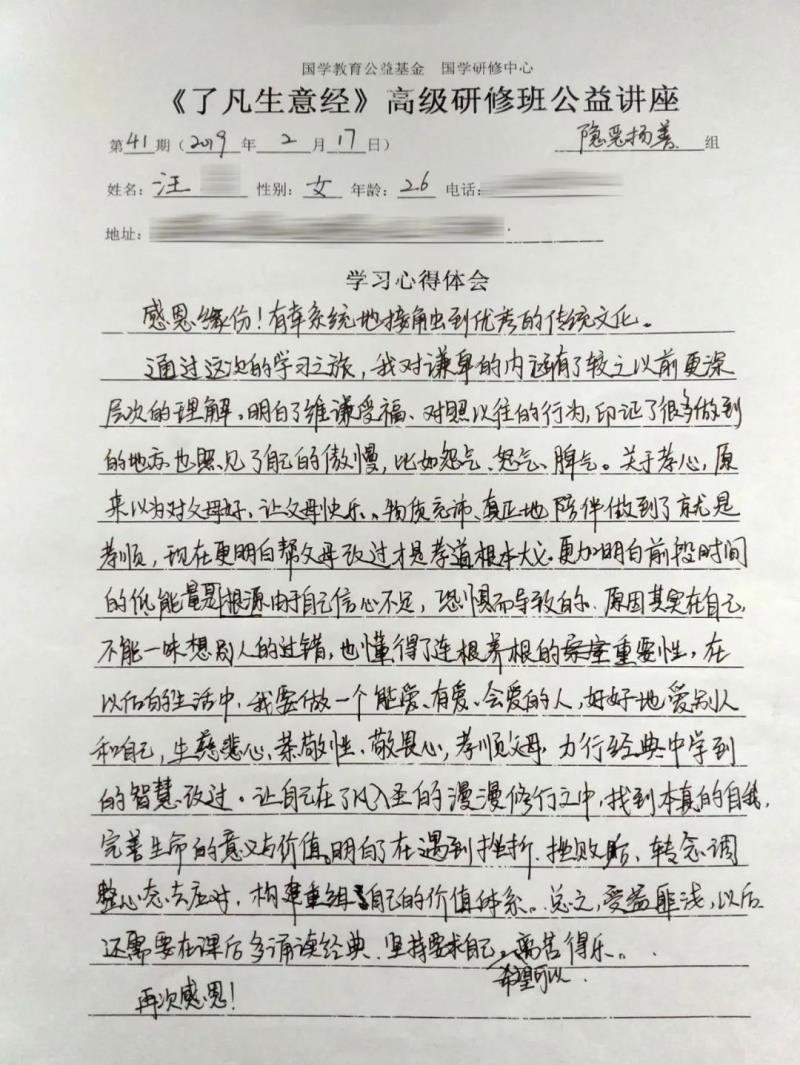 国学教育公益基金 国学研修中心
《了凡生意经》高级研修班公益讲座
第41期（2019年2月17日） 隐恶扬善组
姓名：汪 性别：女 年龄：26 电话：
地址：
学习心得体会
感恩缘份！有幸系统地接触到优秀的传统文化。
通过这次的学习之旅，我对谦卑的内涵有了较之以前更深
层次的理解，明白了维谦受福、对照以往的行为，印证了很多做到
的地方也照见了自己的傲慢，比如怨气、怒气、脾气。关于孝心，原
来以为对父母好、让父母快乐、物质充沛、真正地陪伴做到了就是
孝顺，现在更明白帮父母改过才是孝道根本大义。更加明白前段时间
的低能量是根源由于自己信心不足，恐惧而导致的、原因其实在自己，
不能一味想别人的过错，也懂得了连根养根的重要性，在
以后的生活中，我要做一个能爱、有爱、会爱的人，好好地爱别人
和自己，生慈悲心、恭敬心、敬畏心，孝顺父母，力行经典中学到
的智慧改过。让自己在了凡入圣的漫漫修行之中，找到本真的自我，
完善生命的意义与价值。明白了在遇到挫折、挫败时、转念调
整心态去应对，构建重组自己的价值体系。总之，受益匪浅，以后
还需要在课后多诵读经典、坚持要求自己，希望可以离苦得乐。
再次感恩！